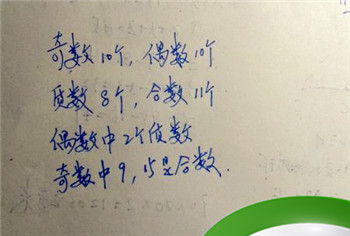 奇数10个，偶数10个
质数8个，合数11个
偶数中2个质数
奇数中9，15是合数．